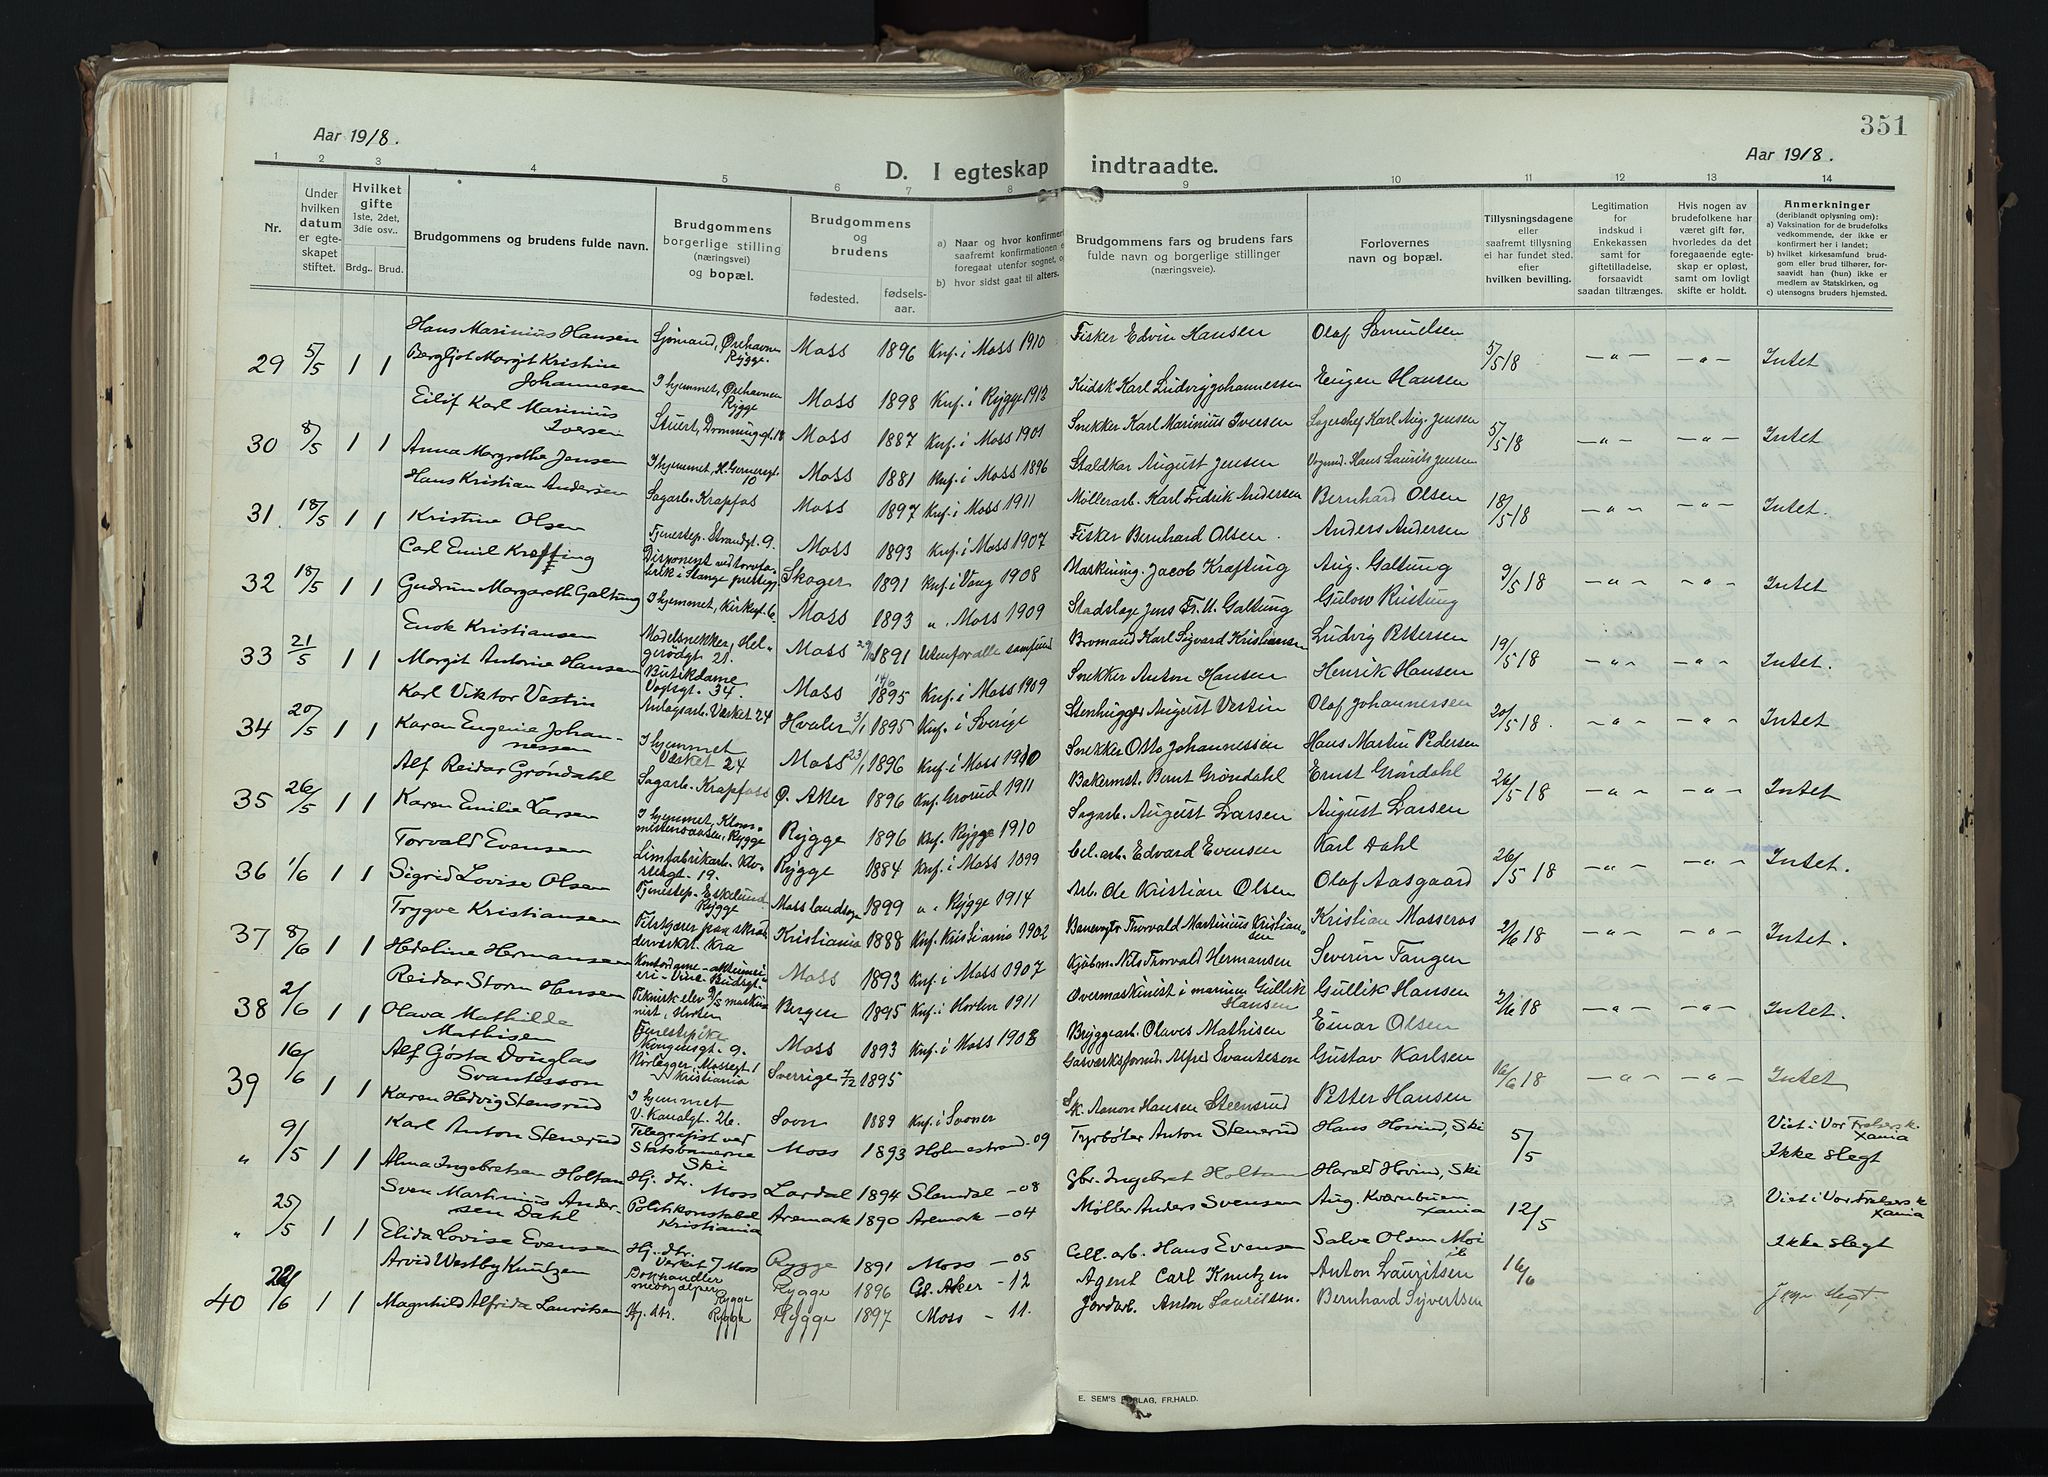 351
Aar 1918.
Aar 1918.
D. I egteskap indtraadte.
1 2 3 4 5 6 7 8 9 10 11 12 13 14
Nr.
Under hvilken datum er egte- skapet stiftet.
Hvilket gifte 1ste, 2det, 3die osv..
Brdg.. Brud.
Brudgommens og brudens fulde navn.
Brudgommens borgerlige stilling (næringsvei) og bopæl.
Brudgommens og brudens
fødested.
fødsels- aar.
a) Naar og hvor konfirmert saafremt konfirmationen foregaat utenfor sognet,
b) hvor sidst gaat til alters.
Brudgommens fars og brudens fars fulde navn og borgerlige stillinger (næringsveie).
Forlovernes navn og bopæl.
Tillysningsdagene eller saafremt tillysning ei har fundet sted. efter hvilken bevilling.
Legitimation for indskud i Enkekassen samt for giftetilladelse, forsaavidt saadan tiltrænges.
Hvis nogen av brudefolkene har været gift før, hvorledes da det foregaaende egte- skap er opløst, samt om lovlig skifte er holdt.
Anmerkninger (deriblandt oplysning om):
a) Vaksination for de brudefolks vedkommende, der ikke er konfirmert her i landet;
b) hvilket kirkesamfund brud- gom eller brud tilhører, for- saavidt han (hun) ikke er medlem av Statskirken, og
c) utensogns bruders hjemsted.
Hans Marinius Hansen Sjømand, Ørehavnen Rygge. Moss 1896 Knf. i Moss 1910 Fisker Edvin Hansen Olaf Samuelsen
29 5/5 1 1 Bergljot Margit Kristine Johannesen I hjemmet, Ørehavnen Rygge Moss 1898 Knf. i Rygge 1912 Kudsk Karl Ludvig Johannessen Eugen Hansen 5/5 18 — " — — " — Intet
Eilif Karl Marinius Iversen Stuert, Dronningsgt. 18 Moss 1887 Knf. i Moss 1901 Snekker Karl Marinius Iversen Lagerchef Karl Aug. Jensen
30 8/5 1 1 Anna Margrethe Jensen I hjemmet, H. Gernersgt. 10 Moss 1881 Knf. i Moss 1896 Staldkar August Jensen Vognmd. Hans Laurits Jensen 5/5 18 — " — — " — Intet
Hans Kristian Andersen Sagarb. Krapfos Moss 1897 Knf. i Moss 1911 Møllerarb. Karl Fredrik Andersen Bernhard Olsen
31. 18/5 1 1 Kristine Olsen Tjenestep. Strandgt. 9. Moss 1893 Knf. i Moss 1907 Fisker Bernhard Olsen. Anders Andersen 18/5 18 — " — — " — Intet.
Carl Emil Krefting Disponent ved torvfabrik i Stange prestegj. Skoger 1891 Knf. i Vang 1908 Maskining. Jacob Krefting Aug. Galtung
32 18/5 1 1 Gudrun Margareth Galtung I hjemmet, Kirkegt. 6. Moss 1893 " Moss 1909 Stadslæge Jens Fr. U. Galtung Gulow Ristung 9/5 18 — " — — " — Intet
Enok Kristiansen Modelsnekker, Helgerødgt. 21. Moss 1891 Utenfor alle samfund Bromand Karl Sigvard Kristiansen Ludvig Pettersen
33 21/5 1 1 Margit Antonie Hansen Butikdame Vogtsgt. 34. Moss 14/6 1895 Knf. i Moss 1909 Snekker Anton Hansen Henrik Hansen 19/5 18 — " — — " — Intet.
Karl Viktor Vestin Anlægsarb. Værket 24 Hvaler 3/1 1895 Knf. i Sverige Stenhugger August Vestin Olaf Johannessen
34 20/5 1 1 Karen Eugenie Johannessen I hjemmet Værket 24 Moss 23/1 1896 Knf. i Moss 1910 Snekker Otto Johannessen Hans Martin Pedersen 20/5 18. — " — — " — Intet
Alf Reidar Grøndahl Sagarb. Krapfoss Ø. Aker 1896 Knf. Grorud 1911 Bakermst. Bernt Grøndahl Ernst Grøndahl
35 26/5 1 1 Karen Emilie Larsen I hjemmet, Rygge Rygge 1896 Knf. Rygge 1910 Sagarb. August Larsen August Larsen 26/5 18 — " — — " — Intet
Torvald Evensen Limfabrikarb. Klostergt. 19. Rygge 1884 Knf. i Moss 1899 Cel. arb. Edvard Evensen Karl Dahl
36 1/6 1 1 Sigrid Lovise Olsen Tjenestep. Eskelund Rygge Moss landsogn 1899 " " Rygge 1914 Arb. Ole Kristian Olsen Olaf Aasgaard 26/5 18 — " — — " — Intet.
Trygve Kristiansen Kra Kristiania 1888 Knf. Kristiania 1902 Banevogter Thorvald Martinius Kristiansen Kristian Mosseros
37 8/6 1 1 Hedeline Hermansen Kontordame Moss 1893 Knf. i Moss 1907 Kjøbm. Nils Thorvald Hermansen Severin Fangen 2/6 18 — " — — " — Intet.
Reidar Storm Hansen Teknisk elev maskinist, Horten Bergen 1895 Knf. i Horten 1911 Overmaskinist i marinen Gullik Hansen Gullik Hansen
38 2/6 1 1 Olava Mathilde Mathisen Tjenestepike Kongensgt. 9. Moss 1893 Knf. i Moss 1908 Bryggearb. Olaves Mathisen Einar Olsen 2/6 18 — " — — " — Intet.
Alf Gösta Douglas Svantesson Rørlegger, Mossegt. 1 Kristiania Sverrige 7/2 1895 Gasverksformd. Alfred Svantesson Gustav Karlsen
39 16/6 1 1 Karen Hedvig Stensrud I hjemmet V. Kanalgt. 26. Svon 1889 Knf. i Svoner Sk. Aanon Hansen Steensrud Petter Hansen 16/6 18 — " — — " — Intet
Karl Anton Stenerud Telegrafist ved Statsbanerne Ski Moss 1893 Holmestrand -09 Fyrbøter Anton Stenerud Hans Hovind, Ski Viet i Vor Frelsers k. Xania
" 9/5 1 1 Alma Ingebretsen Holtan Hj. dtr. Moss Lardal 1894 Slemdal -08 Gbr. Ingebret Holtan Harald Hovind, Ski 5/5 Ikke slegt
Sven Martinius Andersen Dahl Politikonstabel Kristiania Aremark 1890 Aremark -04 Møller Anders Svensen Aug. Kværnbuen Xania Viet i Vor Frelsers k. Xania
" 25/5 1 1 Elida Lovise Evensen Hj. dtr. Verket 7 Moss Rygge 1891 Moss -05 Cell. arb. Hans Evensen Salve Olsen Moi 12/5 Ikke slegt
Arvid Westby Knutzen Bokhandlermedhjælper Rygge Rygge 1896 Gl. Aker -12 Agent Carl Knutzen Anton Lauritsen
40 22/6 1 1 Magnhild Alfrida Lauritsen Hj. dtr. Rygge Rygge 1897 Moss -11. Jordarb. Anton Lauritsen. Bernhard Syvertsen 16/6 slegt.
E. SEM'S FORLAG, FR.HALD.